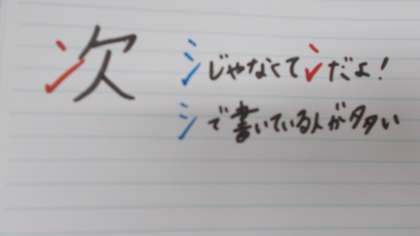 次
シじゃなくて冫だよ!
シで書いている人が多い